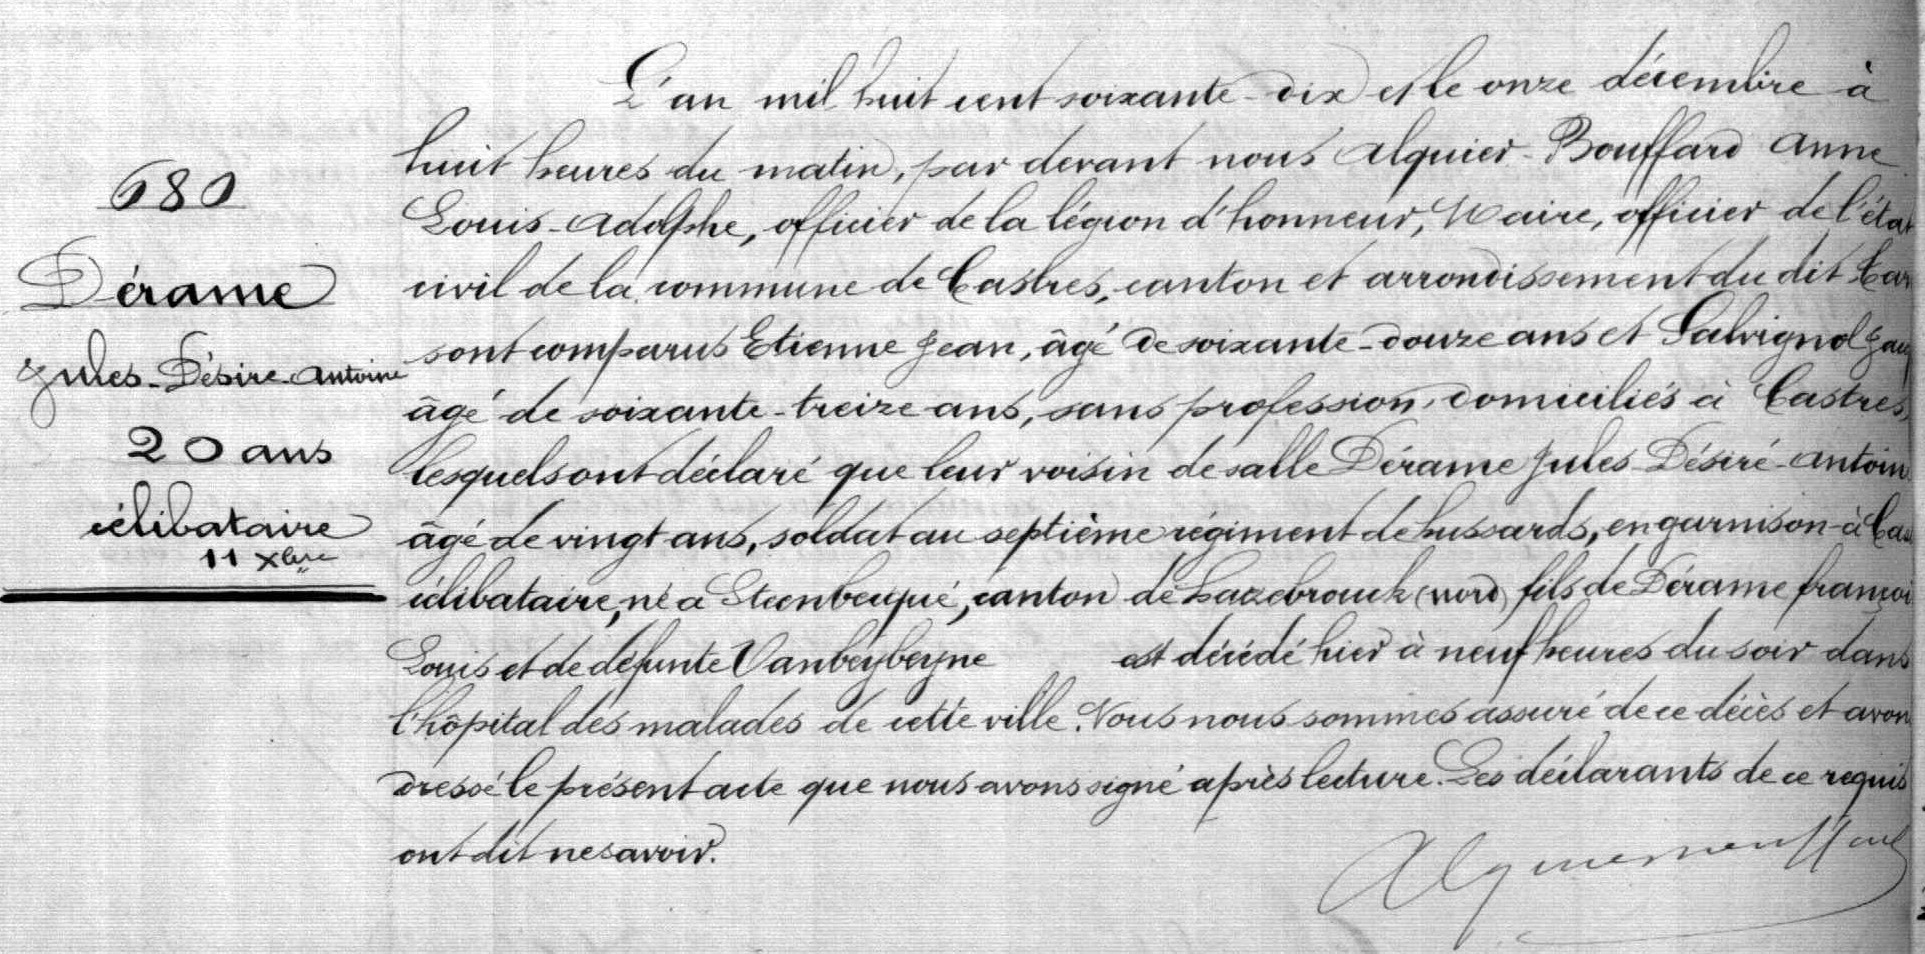 680
Dérame
Jules-Désiré-Antoine
20 ans
célibataire
11 Xbre
L'an mil huit cent soixante-dix et le onze décembre à
huit heures du matin, par devant nous Alquier-Bouffard Anne
Louis-Adolphe, officier de la légion d'honneur, Maire, officier de l'état
civil de la commune de Castres, canton et arrondissement du dit Cas
sont comparus Etienne Jean, âgé de soixante-douze ans et Salvignol
âgé de soixante-treize ans, sans profession, domiciliés à Castres,
lesquels ont déclaré que leur voisin de salle Dérame Jules-Désiré-Antoin
âgé de vingt ans, soldat au septième régiment de hussards, en garnison à Cas
célibataire, né à Steenbecqué, canton de Hazebrouck (Nord) fils de Dérame françoi
Louis et de défunte Vanbeybeyne est décédé hier à neuf heures du soir dans
l'hôpital des malades de cette ville. Nous nous sommes assuré de ce décès et avon
dressé le présent acte que nous avons signé après lecture. Les déclarants de ce requis
ont dit ne savoir.